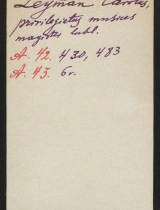 Leyman Carolus,
privilegiatus musices
magister lubl.
A. 42. 430, 483
A. 43. 6v.